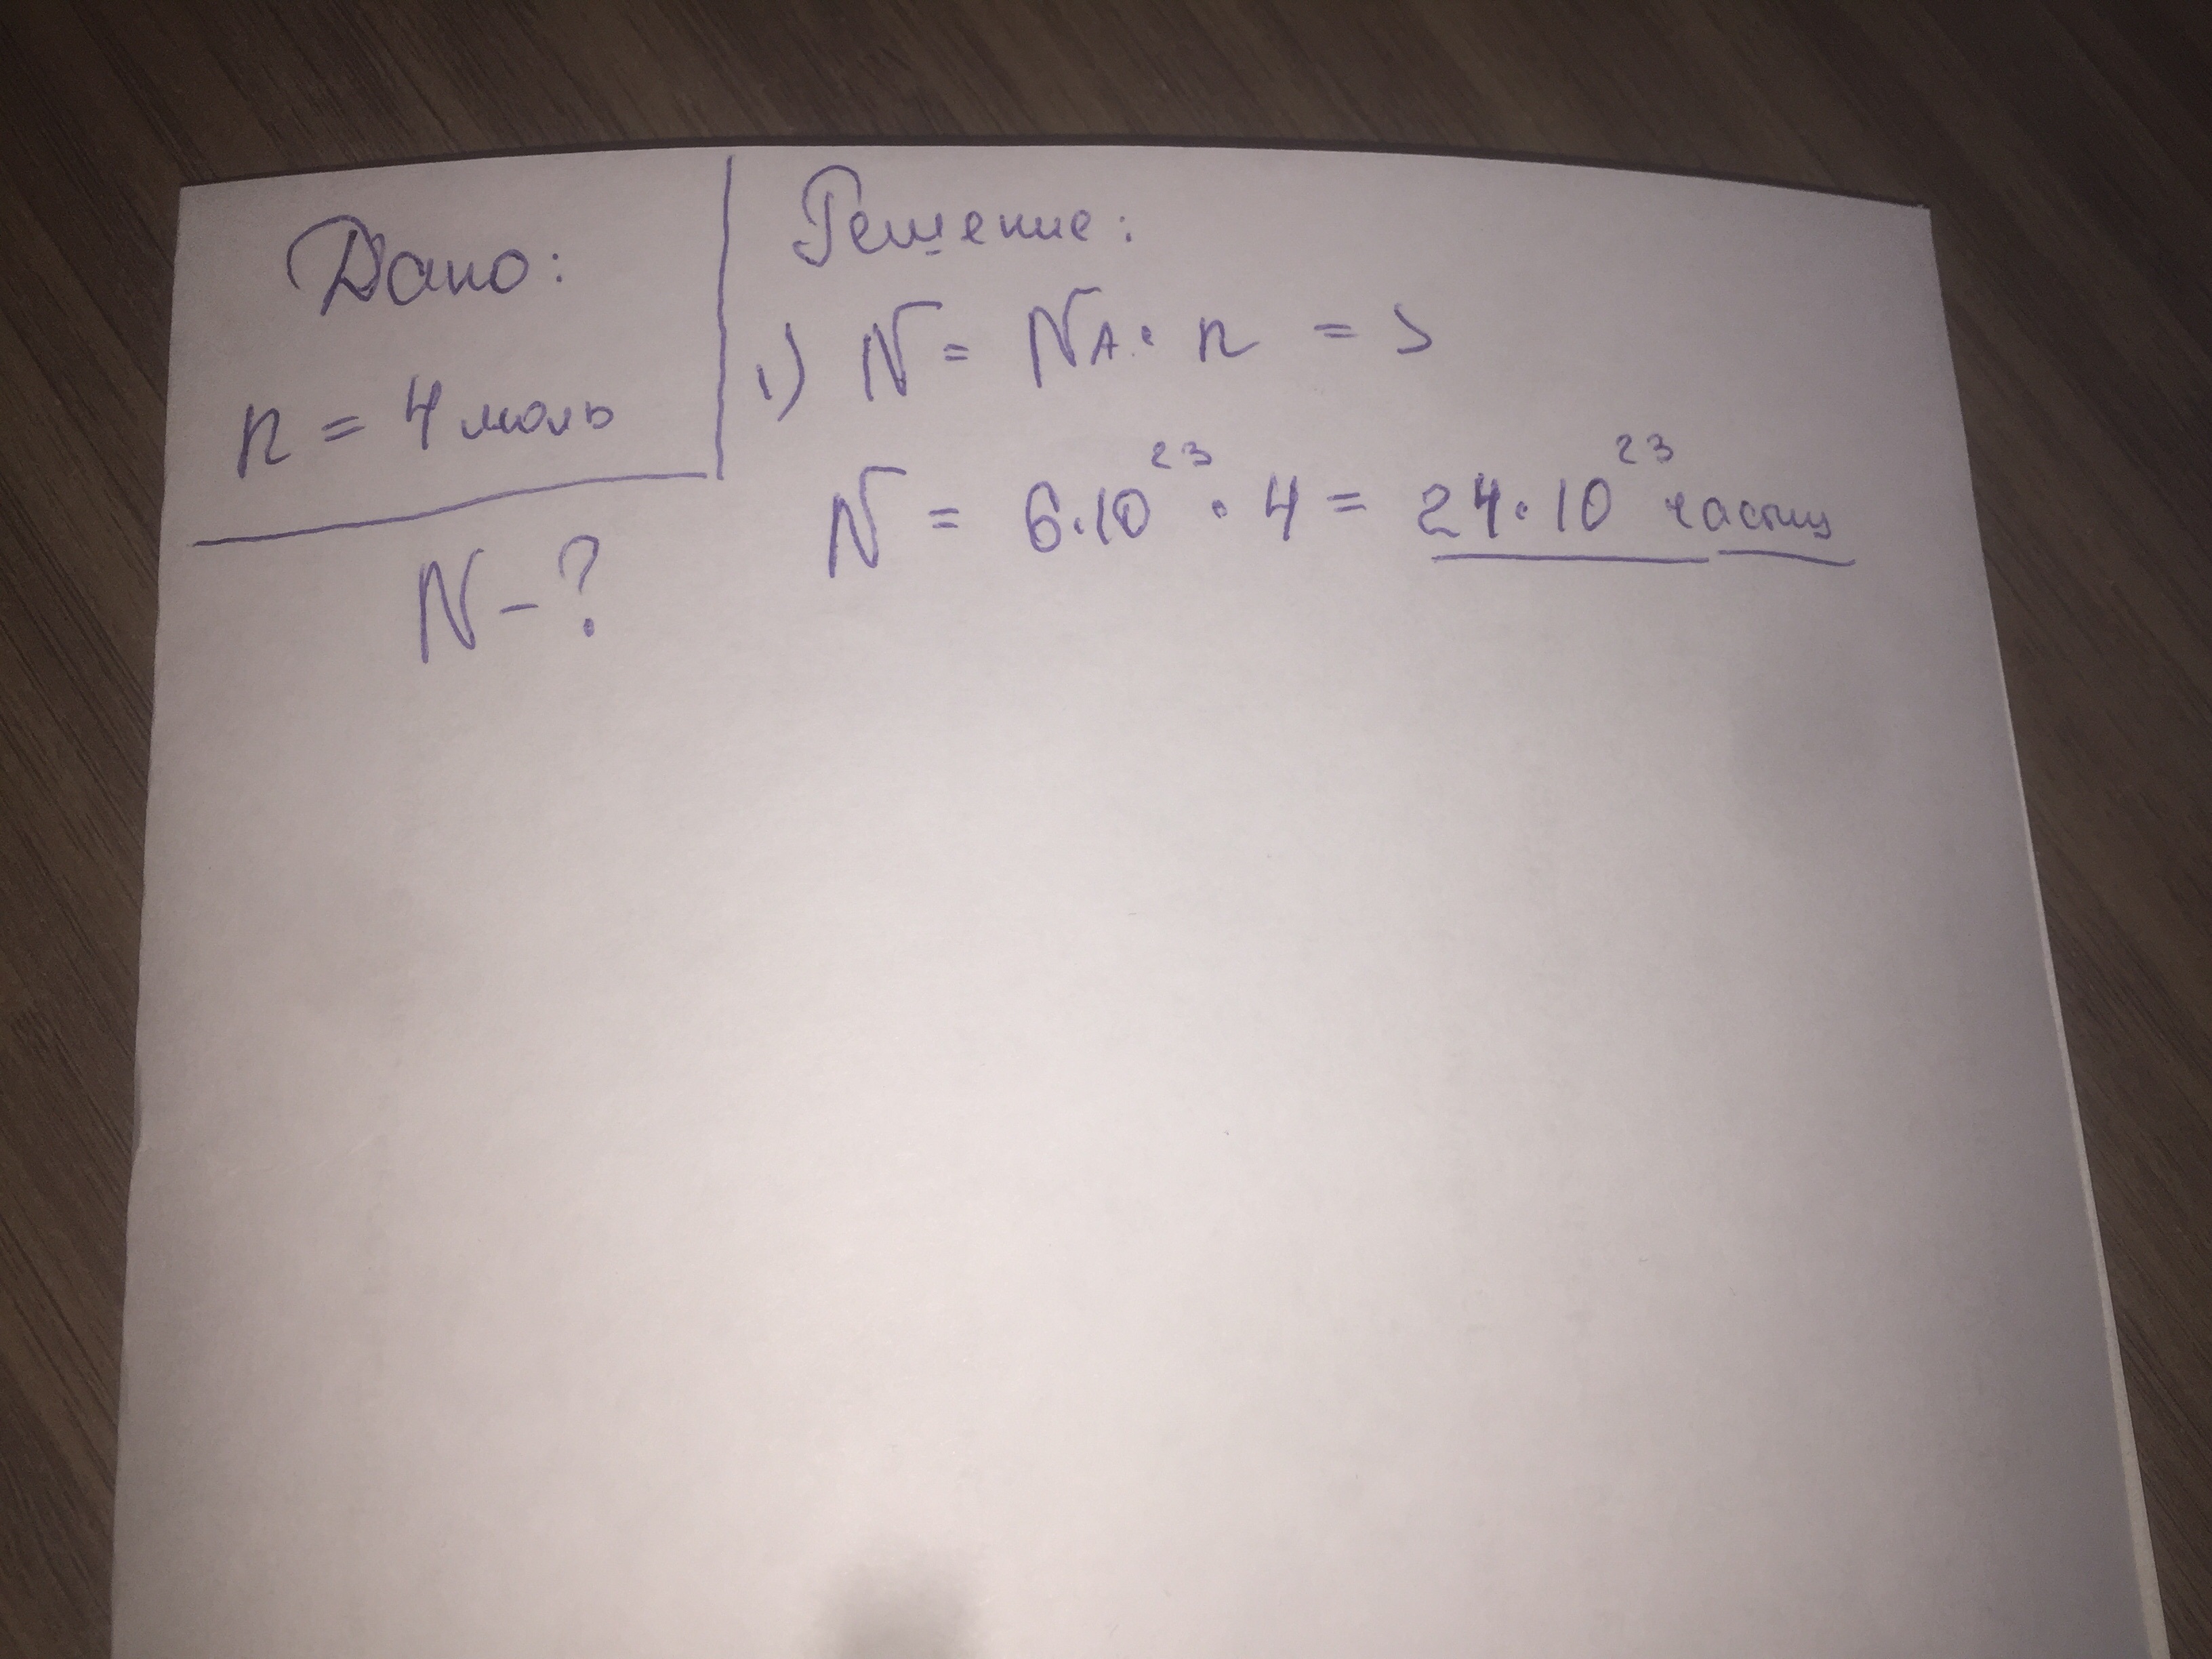 Дано:
n = 4 моль
N - ?
Решение:
1) N = NA · n =>
N = 6·10²³ · 4 = 24·10²³ частиц